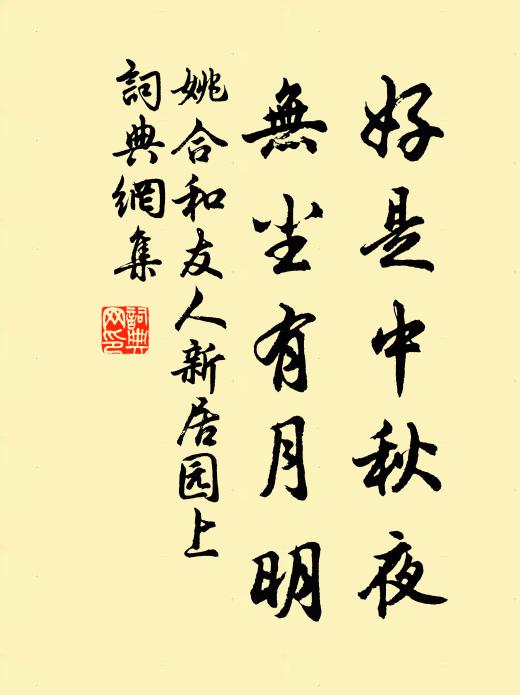 好是中秋夜
無尘有月明
姚合和友人新居园上
詞典網集
詞典网印